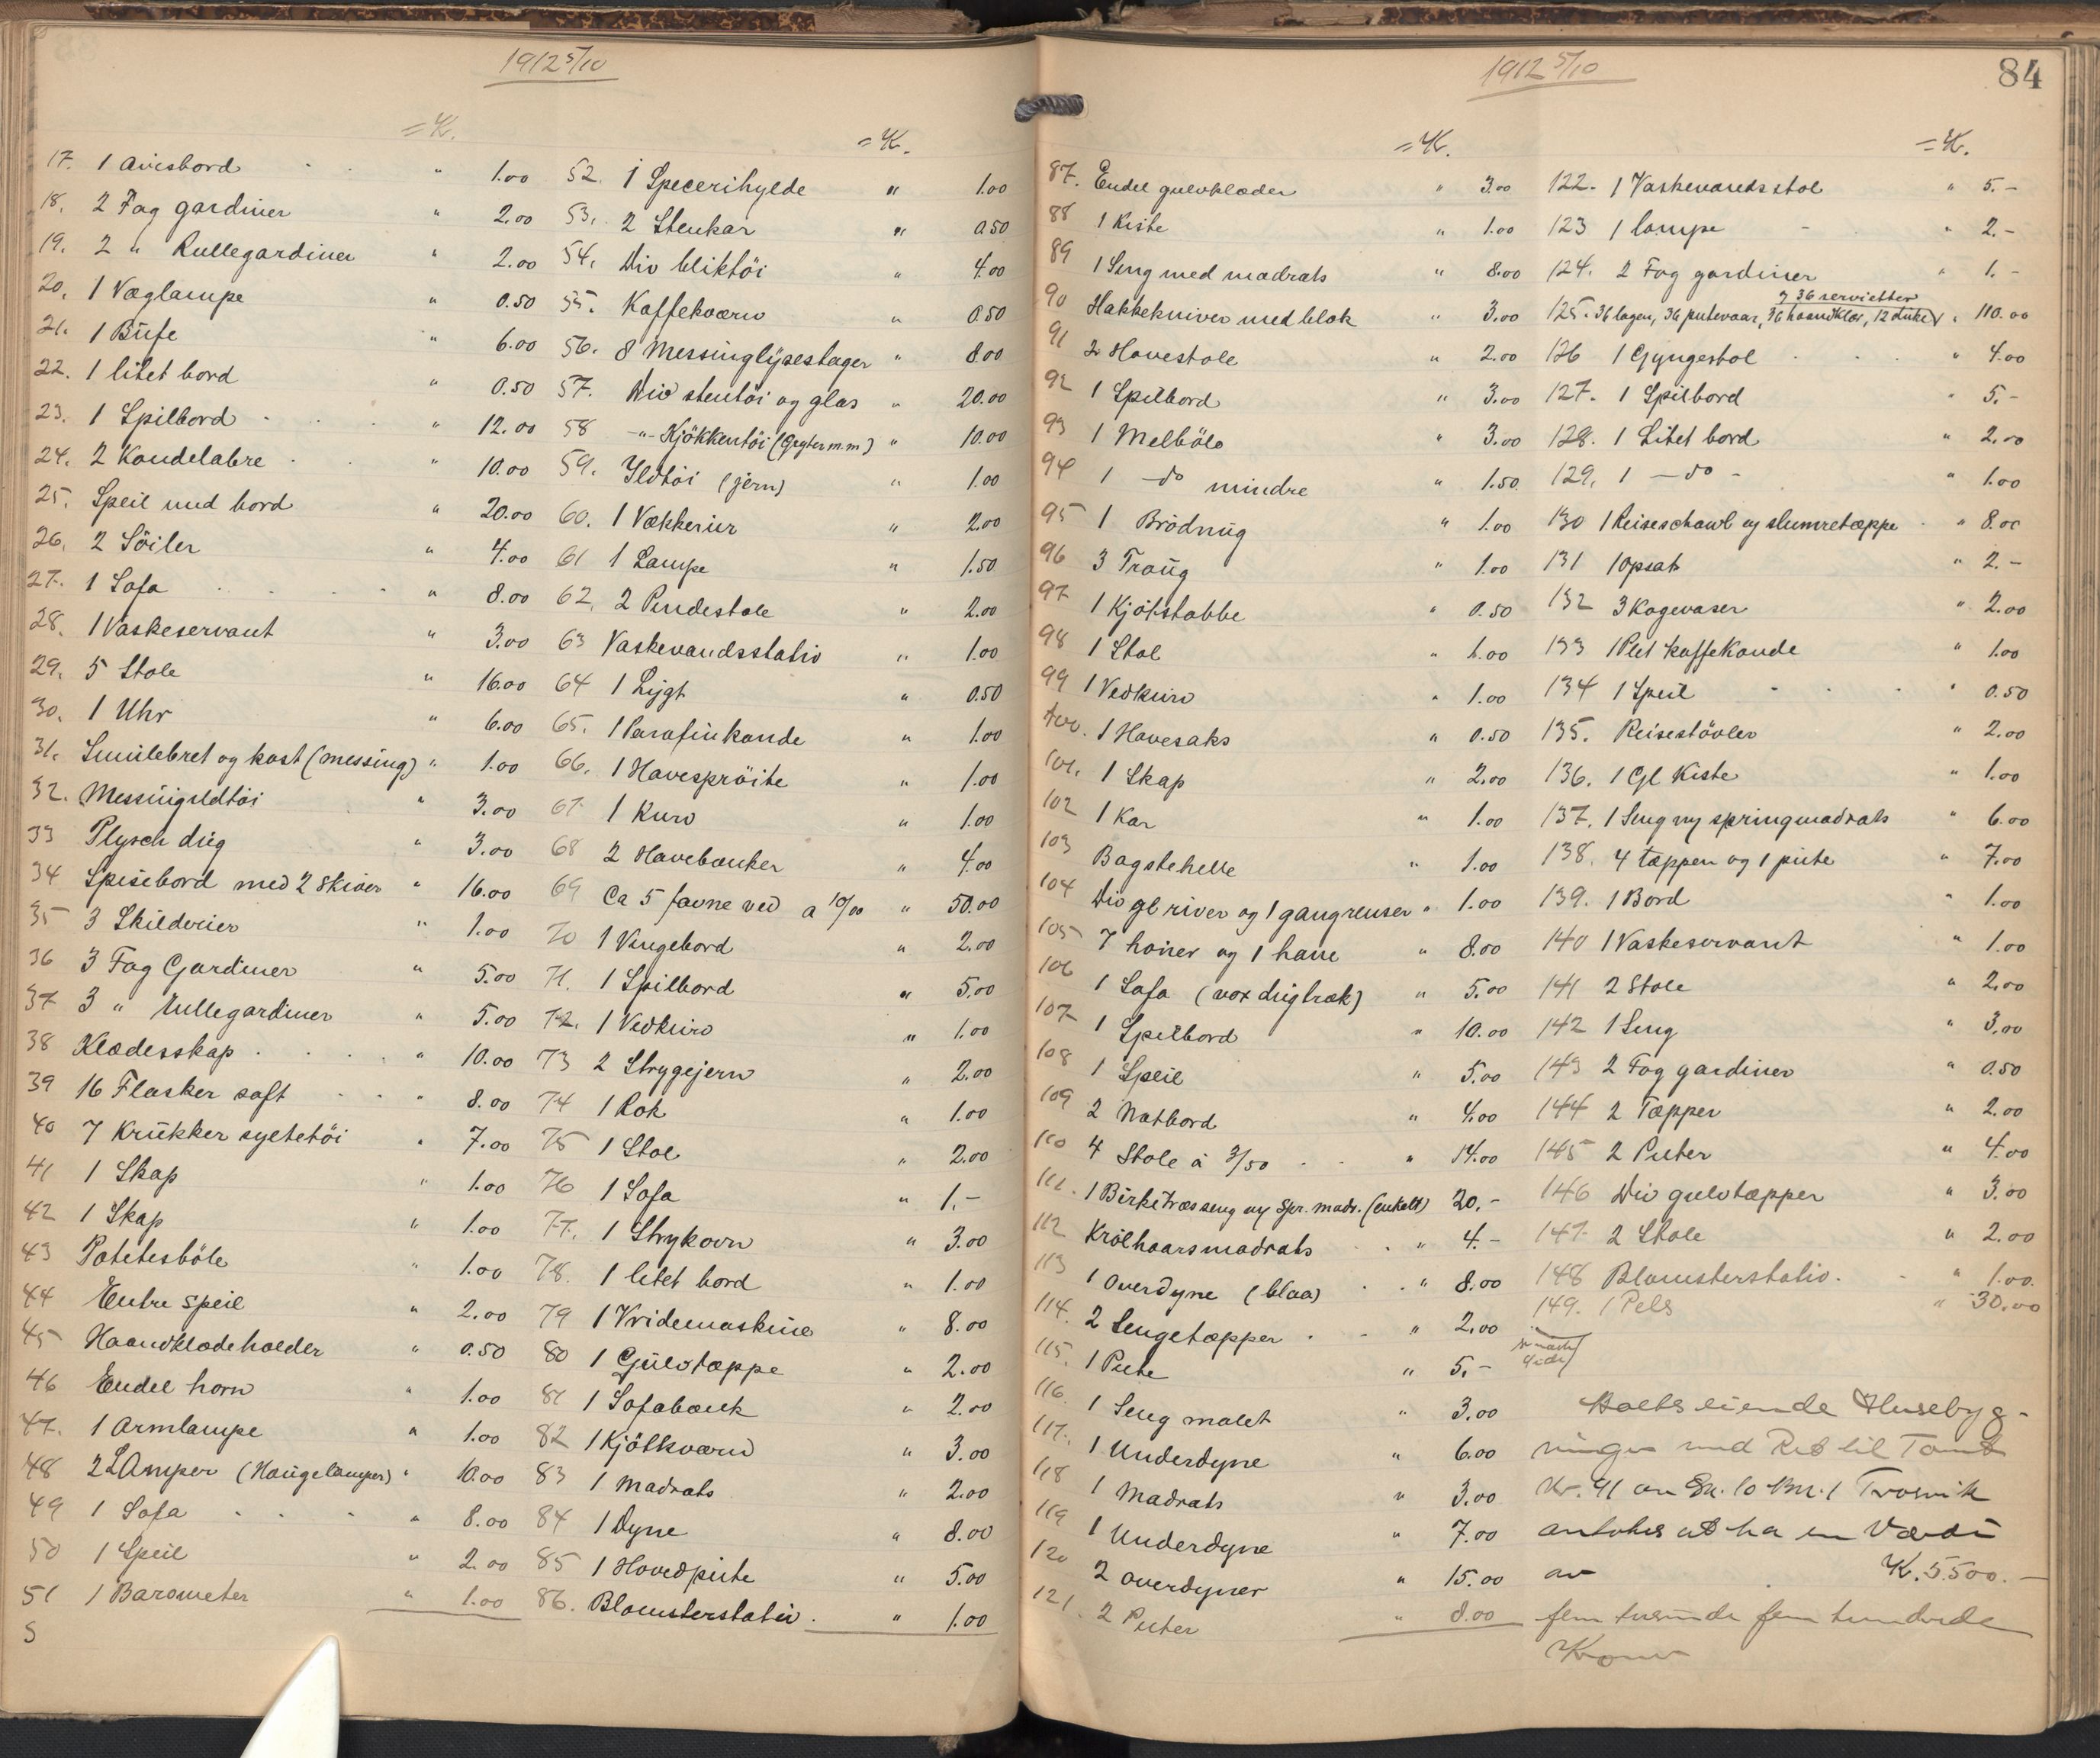 1912 5/10
= Kr.
17. 1 Avisbord " 1.00
18. 2 Fag gardiner " 2.00
19. 2 " Rullegardiner " 2.00
20. 1 Væglampe " 0.50
21. 1 Büfe " 6.00
22. 1 litet bord " 0.50
23. 1 Spilbord " 12.00
24. 2 Kandelabre " 10.00
25. Speil med bord " 20.00
26. 2 Söiler " 4.00
27. 1 Sofa " 8.00
28. 1 Vaskeservant " 3.00
29. 5 Stole " 16.00
30. 1 Uhr " 6.00
31. Smulebret og kost (messing) " 1.00
32. Messingildtöi " 3.00
33 Plysch dug " 3.00
34 Spisebord med 2 skiver " 16.00
35 3 Skilderier " 1.00
36 3 Fag Gardiner " 5.00
37 3 " Rullegardiner " 5.00
38 Klædesskap " 10.00
39 16 Flasker saft " 8.00
40 7 Krükker syltetöi " 7.00
41 1 Skap " 1.00
42 1 Skap " 1.00
43 Potetesböle " 1.00
44 Entre speil " 2.00
45 Haandklædeholder " 0.50
46 Endel horn " 1.00
47. 1 Armlampe " 1.00
48 2 LAmper (Hængelamper) " 10.00
49 1 Sofa " 8.00
50 1 Speil " 2.00
51 1 Barometer " 1.00
S
= Kr.
52. 1 Specerihylde " 1.00
53. 2 Stenkar " 0.50
54. Div bliktöi " 4.00
55. Kaffekværn " 0.50
56. 8 Messinglysestager " 8.00
57. Div stentöi og glas " 20.00
58 -"- Kjökkentöi (Gryter m.m) " 10.00
59. Ildtöi (jern) " 1.00
60. 1 Vækkerur " 2.00
61 1 Lampe " 1.50
62. 2 Pindestole " 2.00
63 Vaskevandsstativ " 1.00
64 1 Lygt " 0.50
65. 1 Parafinkande " 1.00
66. 1 Havespröite " 1.00
67. 1 Kurv " 1.00
68 2 Havebænker " 4.00
69 Ca 5 favne ved a 10/00 " 50.00
70 1 Vingebord " 2.00
71. 1 Spilbord " 5.00
72. 1 Vedkurv " 1.00
73 2 Strygejern " 2.00
74 1 Rok " 1.00
75 1 Stol " 2.00
76 1 Sofa " 1.-
77. 1 Strykovn " 3.00
78. 1 litet bord " 1.00
79 1 Vridemaskine " 8.00
80 1 Gulvtæppe " 2.00
81 1 Sofabænk " 2.00
82 1 Kjötkværn " 3.00
83 1 Madrats " 2.00
84 1 Dyne " 8.00
85 1 Hovedpute " 5.00
86. Blomsterstativ. " 1.00
1912 5/10
84
= Kr.
87. Endel gulvklæder " 3.00
88 1 Kiste " 1.00
89 1 Seng med madrats " 8.00
90 Hakkekniver med blok " 3.00
91 2 Havestole " 2.00
92 1 Spilbord " 3.00
93 1 Melböle " 3.00
94 1 -do mindre " 1.50
95 1 Brödrug " 1.00
96 3 Traug " 1.00
97 1 Kjötstabbe " 0.50
98 1 Stol " 1.00
99 1 Vedkurv " 1.00
100. 1 Havesaks " 0.50
101. 1 Skap " 2.00
102 1 Kar " 1.00
103 Bagstehelle " 1.00
104 Div gl river og 1 gangrenser " 1.00
105 7 höner og 1 hane " 8.00
106 1 Sofa (voxdugtræk) " 5.00
107 1 Spilbord " 10.00
108 1 Speil " 5.00
109 2 Natbord " 4.00
110 4 Stole á 3/50 " 14.00
111. 1 Birketræsseng ny Spr. madr. (enkelt) 20.-
112 Krölhaarsmadrats " 4.-
113 1 Overdyne (blaa) " 8.00
114. 2 Sengetæpper " 2.00
115. 1 Pute " 5.-
116. 1 Seng malet " 3.00
117. 1 Underdyne " 6.00
118 1 Madrats " 3.00
119 1 Underdyne " 7.00
120 2 Overdyner " 15.00
121. 2 Puter " 8.00
= Kr.
122. 1 Vaskevandsstol " 5.-
123 1 lampe " 2.-
124. 2 Fag gardiner " 1.-
og 36 servietter
125. 36 lagen, 36 putevaar, 36 haandklær, 12 duker " 110.00
126 1 Gyngestol " 4.00
127. 1 Spilbord " 5.-
128. 1 Litet bord " 2.00
129. 1 -do- " 1.00
130 1 Reiseschawl og slumretæppe " 8.00
131 1 Opsats " 2.-
132 3 Kagevaser " 2.00
133 1 Plet kaffekande " 1.00
134 1 Speil " 0.50
135. Reisestövler " 2.00
136. 1 Gl Kiste " 1.00
137. 1 Seng ny springmadrats " 6.00
138. 4 tæpper og 1 pute " 7.00
139. 1 Bord " 1.00
140 1 Vaskeservant " 1.00
141 2 Stole " 2.00
142 1 Seng " 3.00
143 2 Fag gardiner " 0.50
144 2 Tæpper " 2.00
145 2 Puter " 4.00
146 Div gulvtæpper " 3.00
147. 2 Stole " 2.00
148 Blomsterstativ. " 1.00.
149. 1 Pels " 30.00
Boets eiende Husebyg-
ninger med Ret til Tomt
Nr. 91 av Gn. 10 Bn. 1 Trosvik
antokes at ha en Værdi
av Kr. 5.500.-
fem tusinde fem hundrede
Kroner